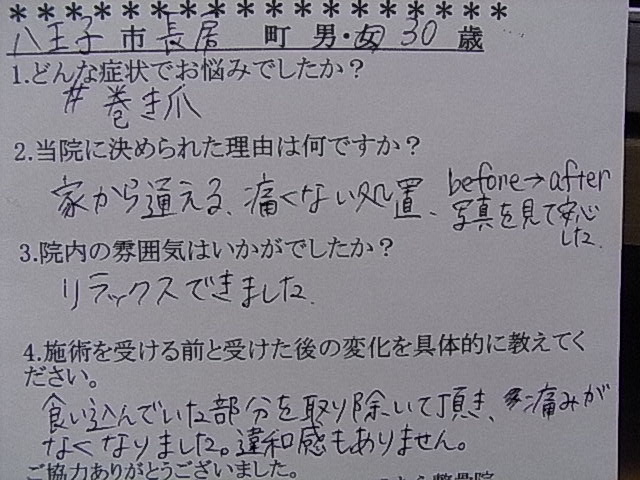 ＊＊＊＊＊＊＊＊＊＊＊＊＊＊＊＊＊＊
八王子 市 長房 町 男・女 30 歳
1.どんな症状でお悩みでしたか？
# 巻き爪
2.当院に決められた理由は何ですか？
家から通える、痛くない処置、before→after
写真を見て安心
した.
3.院内の雰囲気はいかがでしたか？
リラックスできました.
4.施術を受ける前と受けた後の変化を具体的に教えてく
ださい。
食い込んでいた部分を取り除いて頂き、痛みが
なくなりました。違和感もありません。
ご協力ありがとうございました。
整骨院